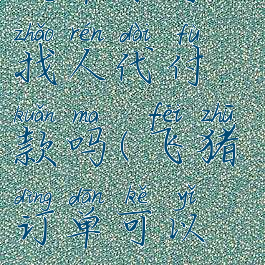 zhǎo rén dài fù
找人代付
kuǎn ma fēi zhū
款吗(飞猪
dìng dān kě yǐ
订单可以